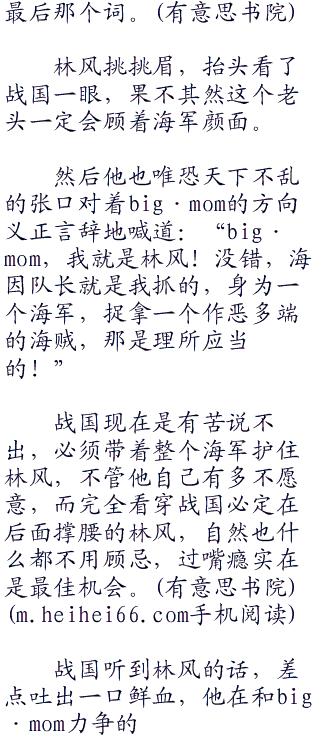 最后那个词。(有意思书院)
林风挑挑眉，抬头看了
战国一眼，果不其然这个老
头一定会顾着海军颜面。
然后他也唯恐天下不乱
的张口对着big·mom的方向
义正言辞地喊道：“big·
mom，我就是林风！没错，海
因队长就是我抓的，身为一
个海军，捉拿一个作恶多端
的海贼，那是理所应当
的！”
战国现在是有苦说不
出，必须带着整个海军护住
林风，不管他自己有多不愿
意，而完全看穿战国必定在
后面撑腰的林风，自然也什
么都不用顾忌，过嘴瘾实在
是最佳机会。(有意思书院)
(m.heihei66.com手机阅读)
战国听到林风的话，差
点吐出一口鲜血，他在和big
·mom力争的